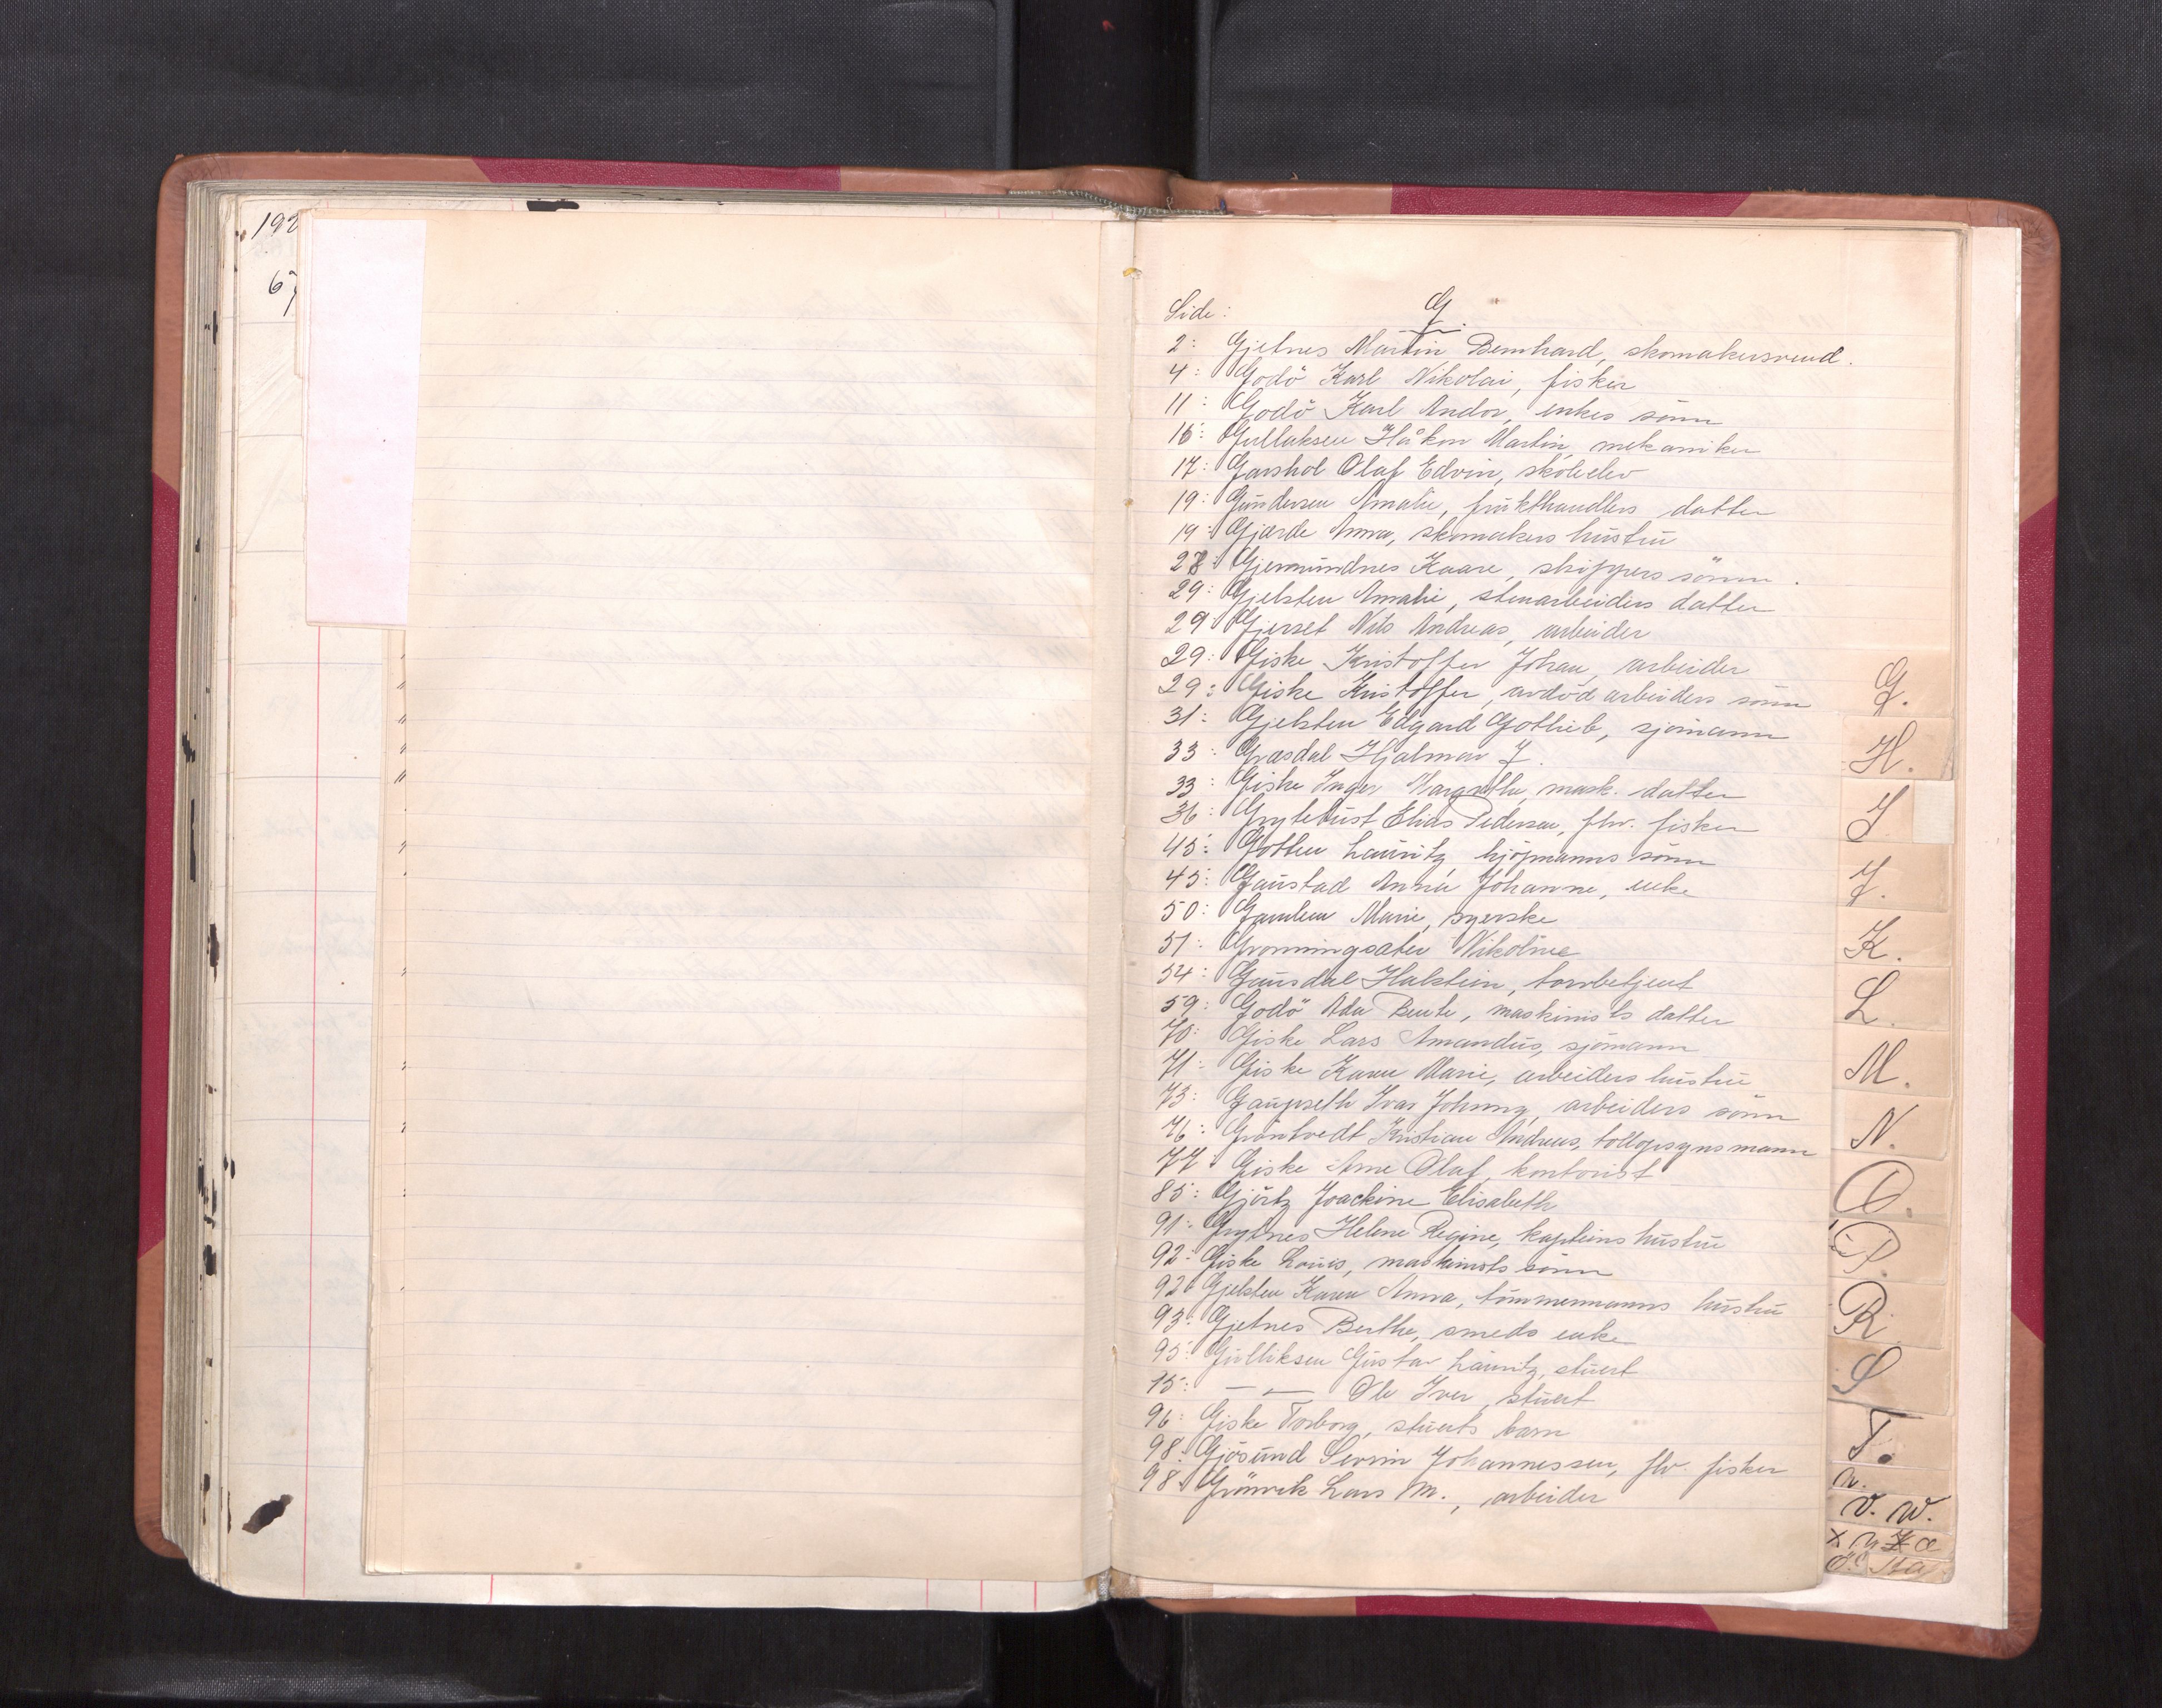 192
67
Side: G.
2: Gjelnes Martin Bernhard, skomakersvend.
4: Godö Karl Nikolai, fisker
11: Godö Karl Andor, enkes sönn
16: Gulluksen Håkon Martin, mekaniker
17: Garshol Olaf Edvin, skoleelev
19: Gundersen Amalie, frukthandlers datter
19: Gjærde Anna, skomakers hustru
28: Gjermundnes Kaare, skippers sönn.
29: Gjelsten Amalie, stenarbeiders datter
29: Gjerset Nils Andreas, arbeider
29: Giske Kristoffer Johan, arbeider
29: Giske Kristoffer, avdöd arbeiders sönn
31: Gjelsten Edgard Gotlieb, sjömann
33: Græsdal Hjalmar J.
33: Giske Inger Margrethe, mask. datter
36: Gryteüst Elias Pedersen, fhv. fisker
45: Gotten Lauritz, kjöpmanns sönn
45: Gaustad Anna Johanne, enke
50: Gamlem Marie, syerske
51: Gronningsæter Nikoline
54: Gausdal Halstein, tovbetjent
59: Godö Ada Bente, maskinists datter
70: Giske Lars Amandus, sjömann
71: Giske Karen Marie, arbeiders hustru
73: Gaupseth Ivar Johnny, arbeiders sönn
76: Gröntvedt Kristian Andreas, tollopsynsmann
77: Giske Arne Olaf, kontorist
85: Gjörtz Joackine Elisabeth
91: Grytnes Helene Regine, kapteins hustru
92: Giske Louis, maskinists sönn
92: Gjelsten Karen Anna, tömmermanns hustru
93: Gjetnes Berthe, smeds enke
95: Gulliksen Gustav Lauritz, stuert
15: — — Ole Iver, stuert
96: Giske Torborg, stuerts barn
98: Gjösund Severin Johannessen, fhv. fisker
98: Grönvik Lars M., arbeider
G.
H.
I
J.
K.
L.
M.
N.
O.
P.
R.
S
T.
U.
V. W.